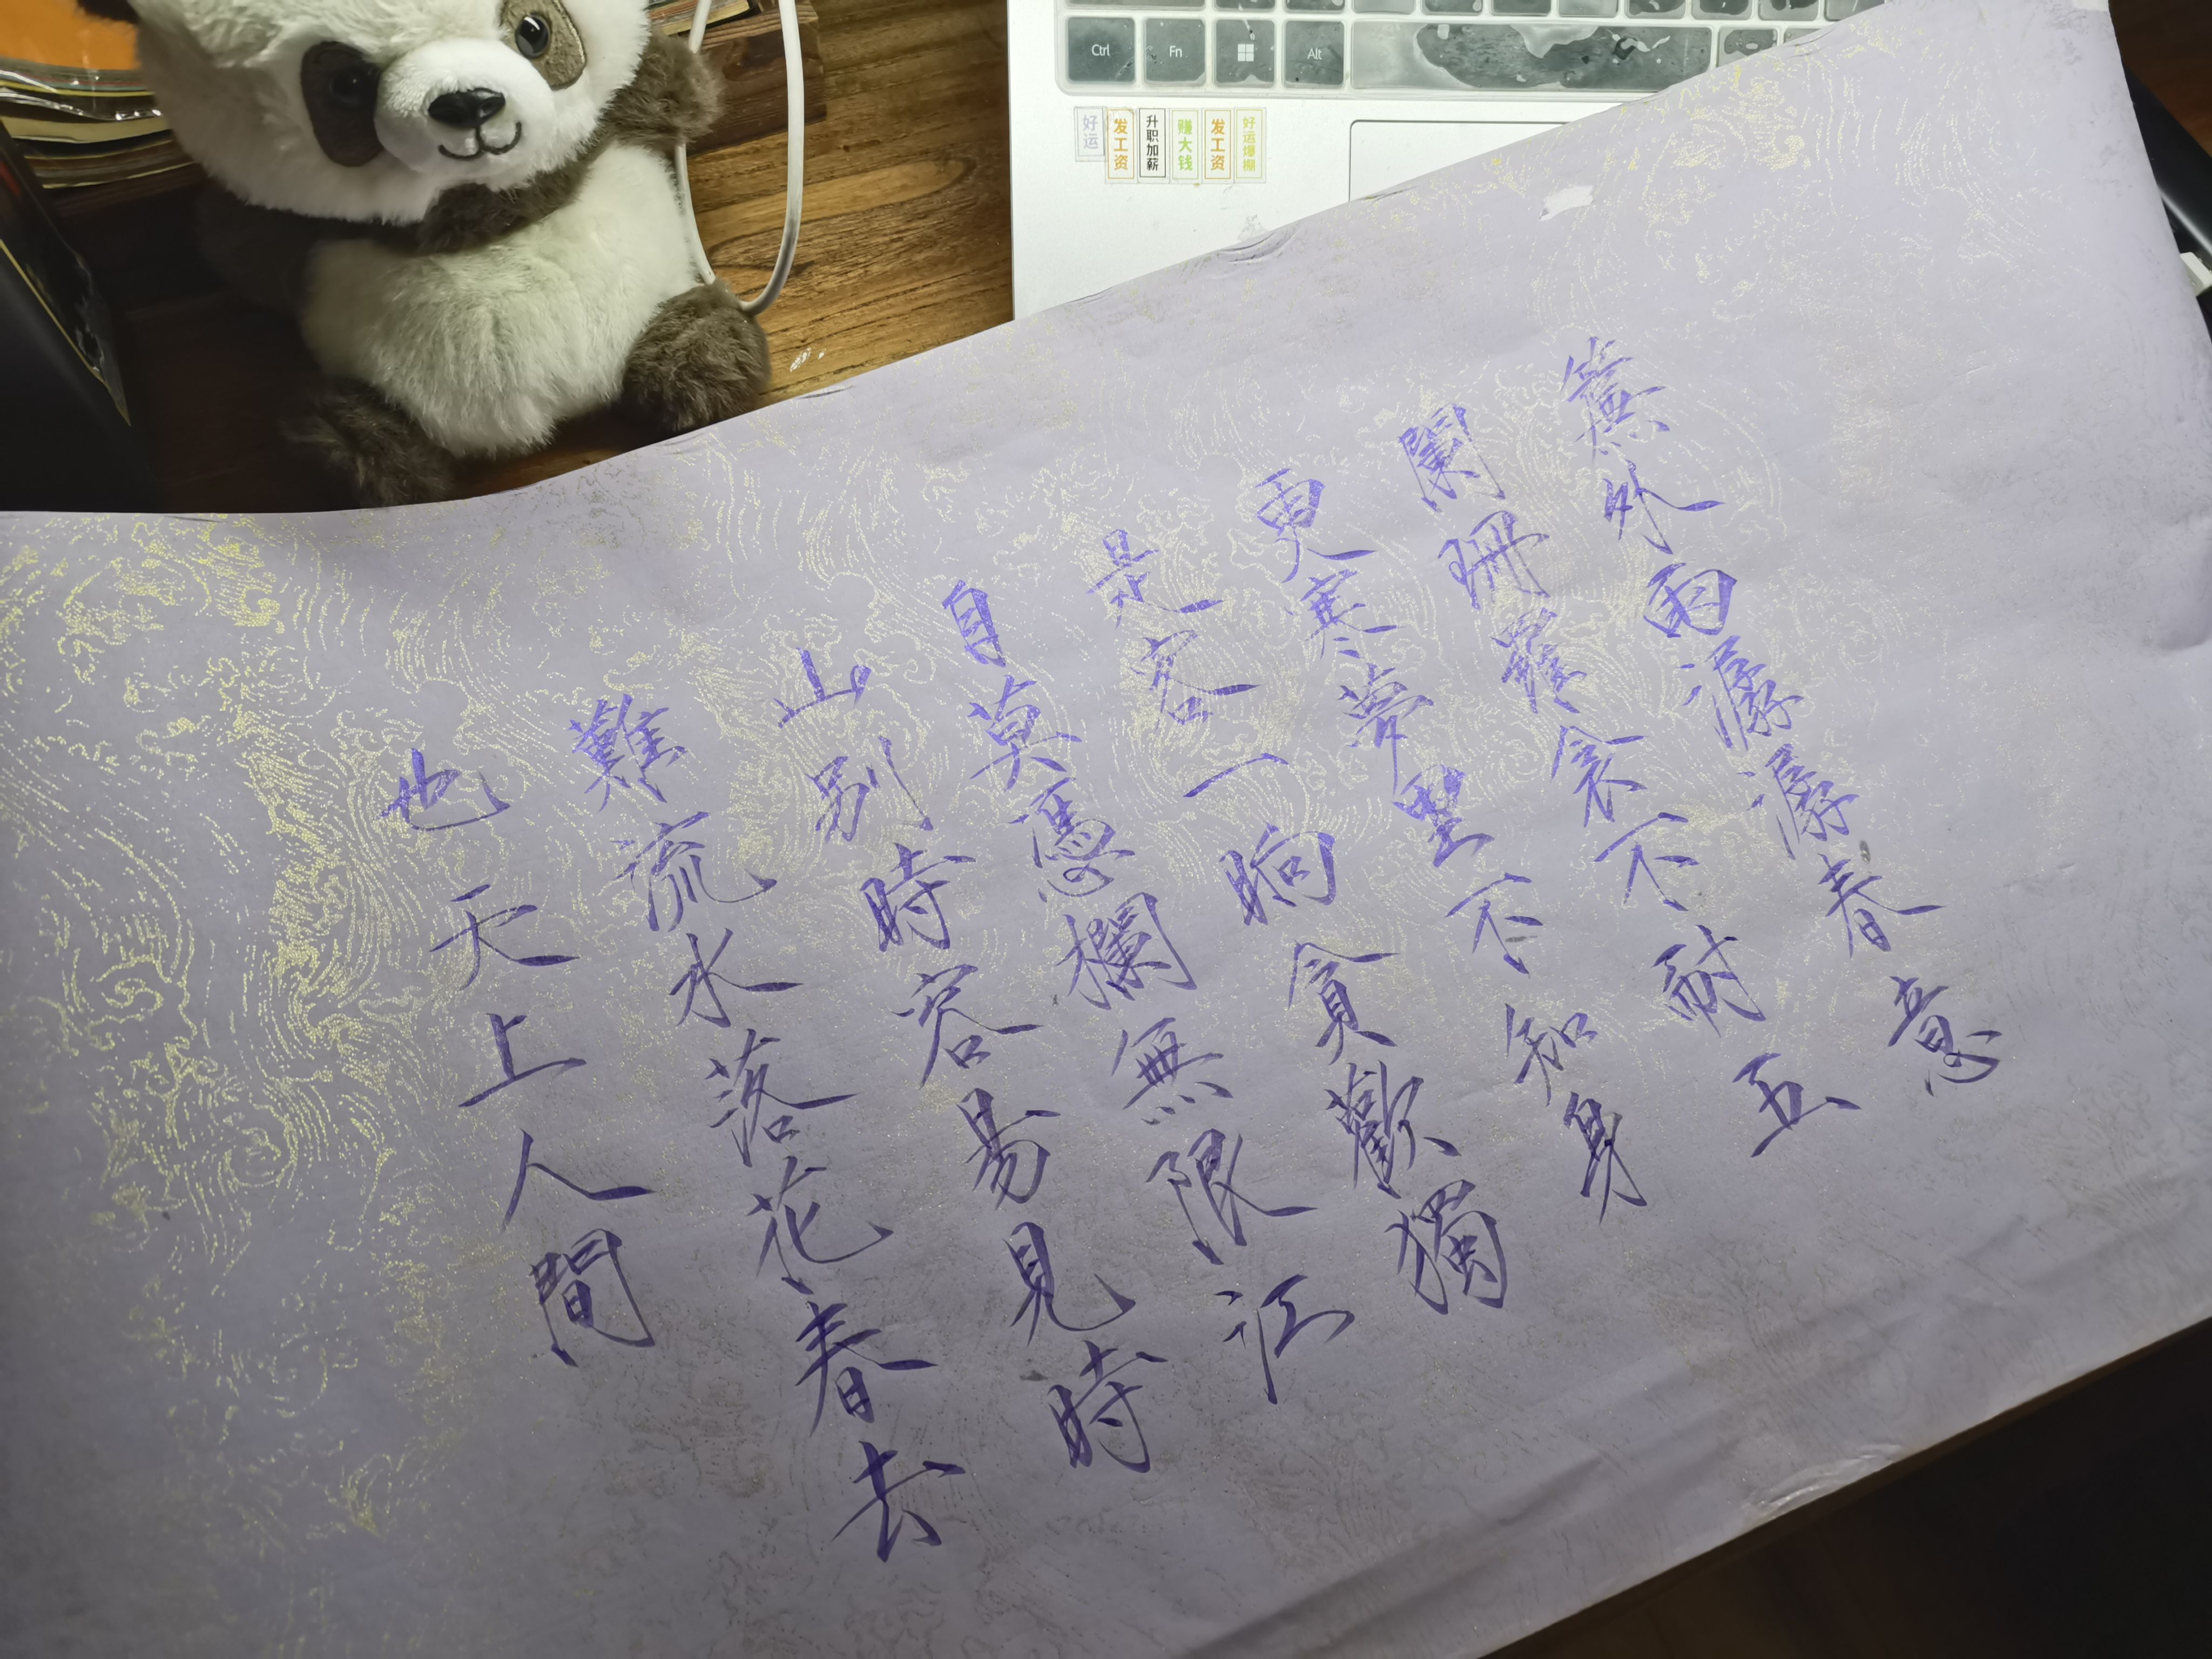 Ctrl Fn Alt
好运
发工资
升职加薪
赚大钱
发工资
好运爆棚
簾外雨潺潺春意
闌珊羅衾不耐五
更寒夢里不知身
是客一晌貪歡獨
自莫憑欄無限江
山別時容易見時
難流水落花春去
也天上人間